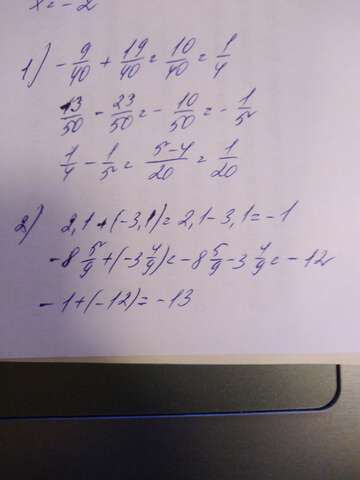 x = -2
1) - 9/40 + 19/40 = 10/40 = 1/4
13/50 - 23/50 = - 10/50 = - 1/5
1/4 - 1/5 = 5-4/20 = 1/20
2) 2,1 + (-3,1) = 2,1 - 3,1 = -1
-8 5/9 + (-3 4/9) = -8 5/9 - 3 4/9 = -12
-1 + (-12) = -13